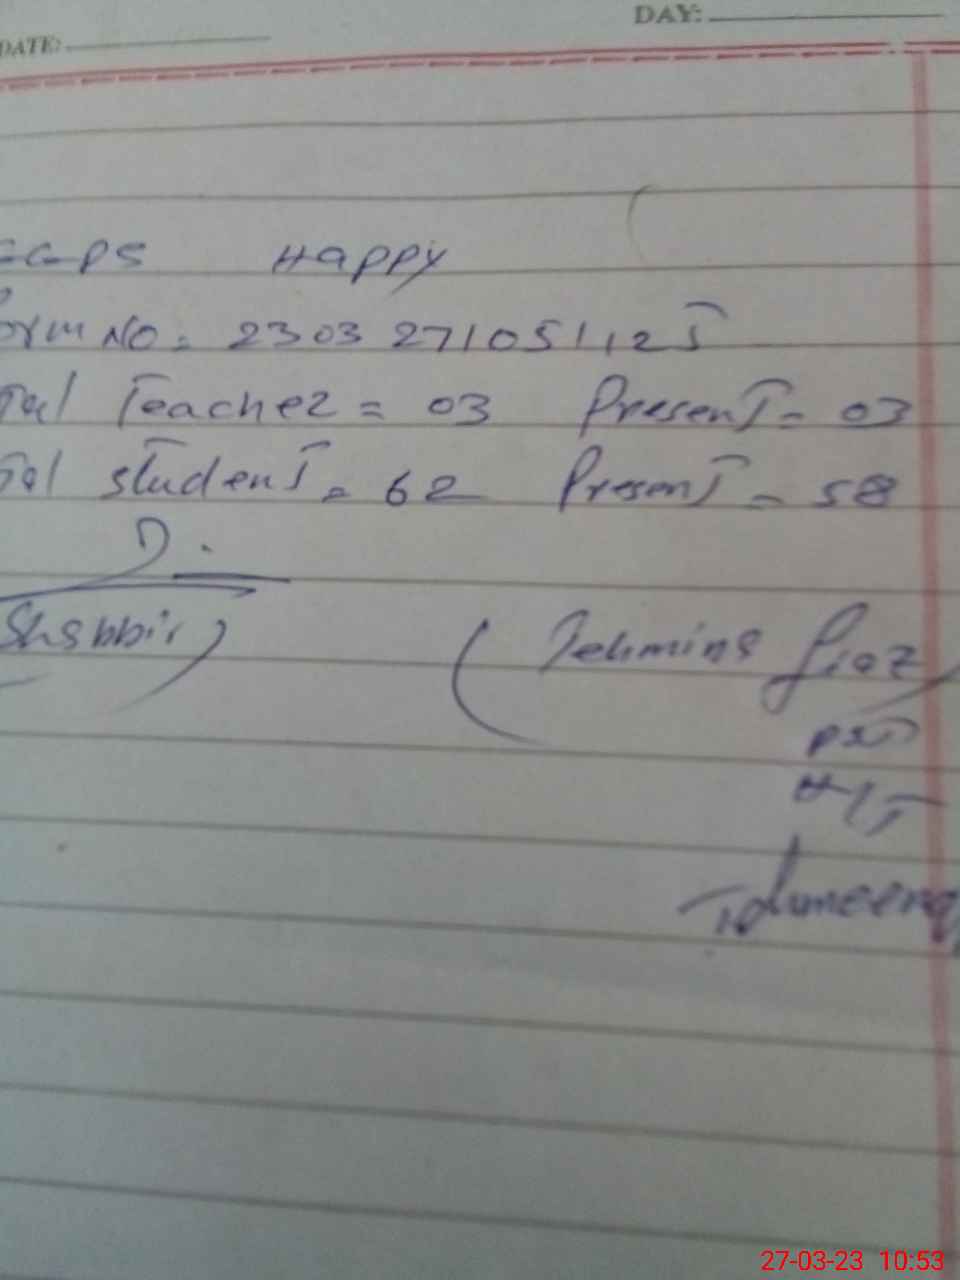 DATE: DAY:
GGPS Happy
Form No: 230327105112 5
Total Teacher = 03 Present = 03
Total student = 62 Present = 58
(Shabbir) (Tehmina Fiaz)
PST
H/T
27-03-23 10:53